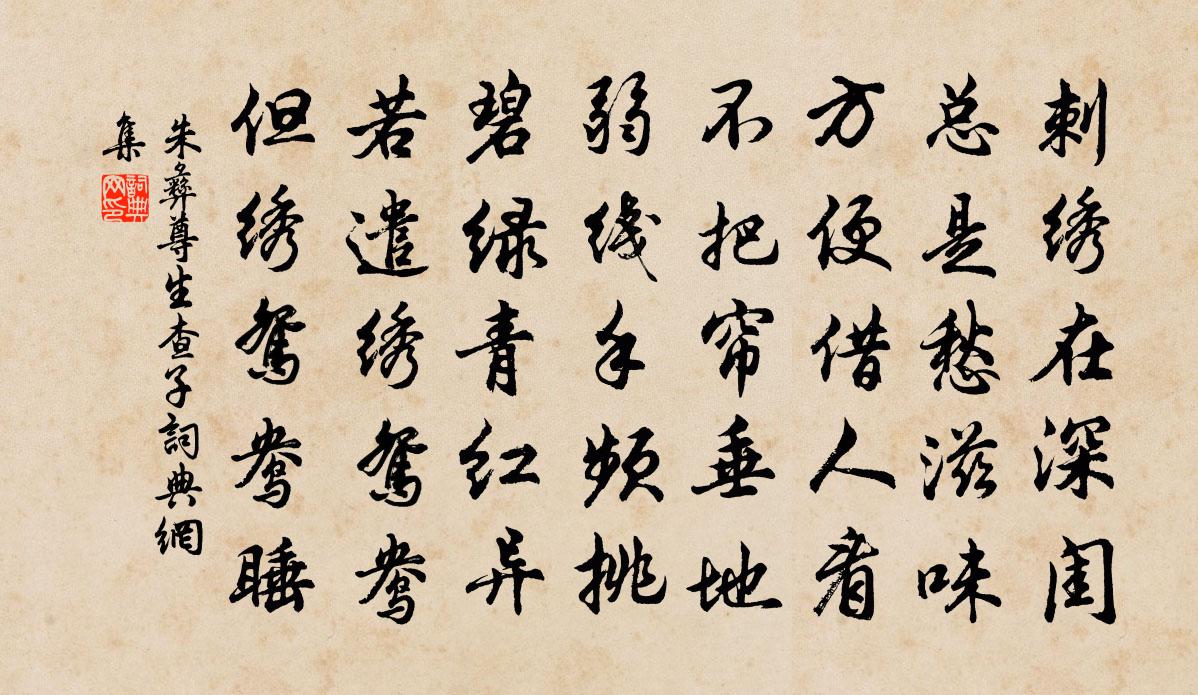 刺绣在深闺
总是愁滋味
方便借人看
不把帘垂地
弱线手频挑
碧绿青红异
若遣绣鸳鸯
但绣鸳鸯睡
朱彝尊生查子詞典網
集
詞典网印